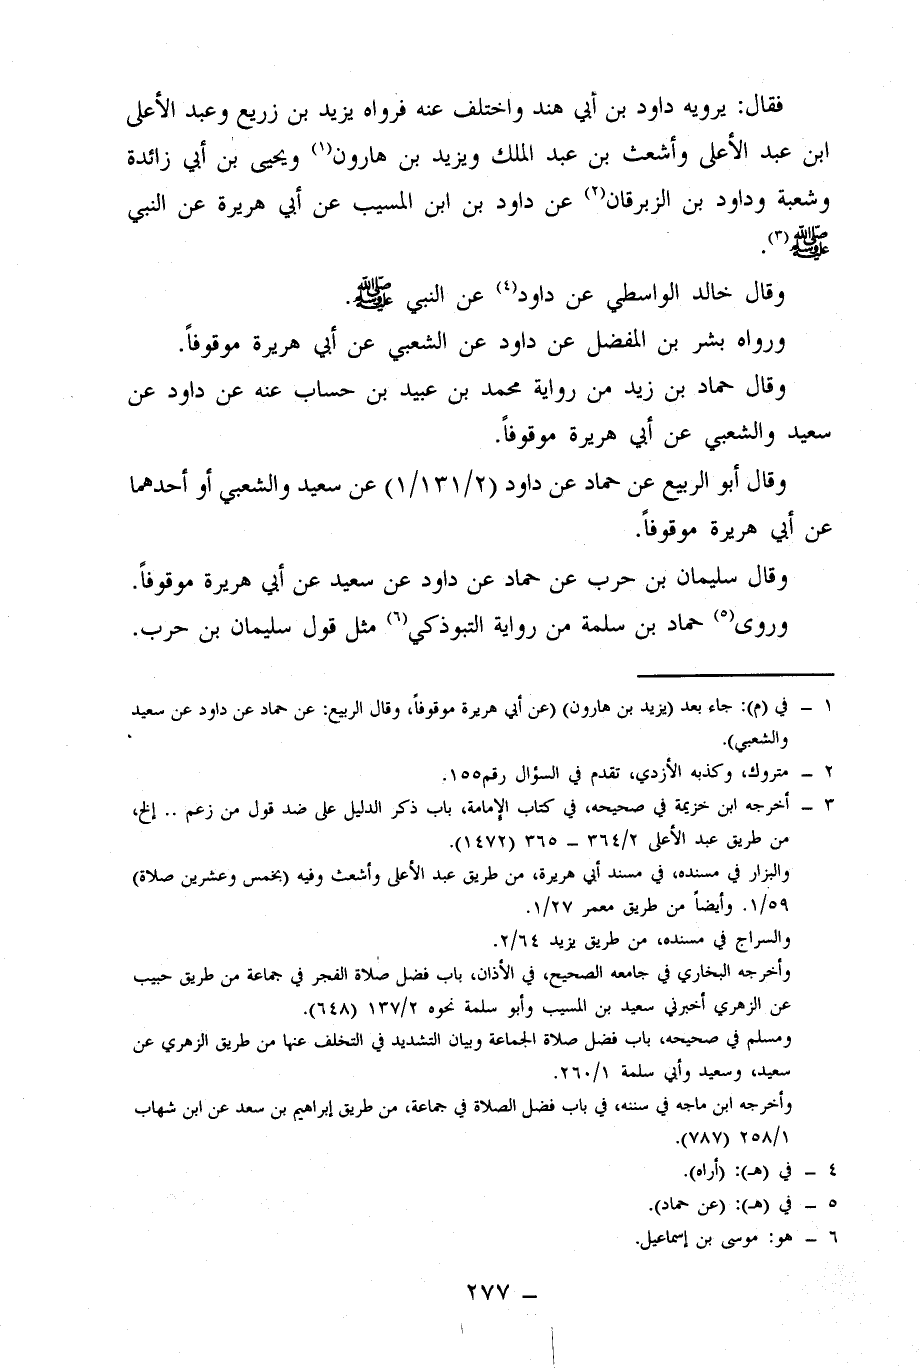 فقال: يرويه داود بن أبي هند واختلف عنه فرواه يزيد بن زريع وعبد الأعلى
ابن عبد الأعلى وأشعث بن عبد الملك ويزيد بن هارون(١) ويحيى بن أبي زائدة
وشعبة وداود بن الزبرقان(٢) عن داود بن ابن المسيب عن أبي هريرة عن النبي
ﷺ(٣).
وقال خالد الواسطي عن داود(٤) عن النبي ﷺ.
ورواه بشر بن المفضل عن داود عن الشعبي عن أبي هريرة موقوفاً.
وقال حماد بن زيد من رواية محمد بن عبيد بن حساب عنه عن داود عن
سعيد والشعبي عن أبي هريرة موقوفاً.
وقال أبو الربيع عن حماد عن داود (١/١٣١/٢) عن سعيد والشعبي أو أحدهما
عن أبي هريرة موقوفاً.
وقال سليمان بن حرب عن حماد عن داود عن سعيد عن أبي هريرة موقوفاً.
وروى(٥) حماد بن سلمة من رواية التبوذكي(٦) مثل قول سليمان بن حرب.
١ – في (م): جاء بعد (يزيد بن هارون) (عن أبي هريرة موقوفاً، وقال الربيع: عن حماد عن داود عن سعيد
والشعبي).
٢ – متروك، وكذبه الأزدي، تقدم في السؤال رقم١٥٥.
٣ – أخرجه ابن خزيمة في صحيحه، في كتاب الإمامة، باب ذكر الدليل على ضد قول من زعم .. إلخ،
من طريق عبد الأعلى ٣٦٤/٢ – ٣٦٥ (١٤٧٢).
والبزار في مسنده، في مسند أبي هريرة، من طريق عبد الأعلى وأشعث وفيه (بخمس وعشرين صلاة)
١/٥٩. وأيضاً من طريق معمر ١/٢٧.
والسراج في مسنده، من طريق يزيد ٢/٦٤.
وأخرجه البخاري في جامعه الصحيح، في الأذان، باب فضل صلاة الفجر في جماعة من طريق حبيب
عن الزهري أخبرني سعيد بن المسيب وأبو سلمة نحوه ١٣٧/٢ (٦٤٨).
ومسلم في صحيحه، باب فضل صلاة الجماعة وبيان التشديد في التخلف عنها من طريق الزهري عن
سعيد، وسعيد وأبي سلمة ٢٦٠/١.
وأخرجه ابن ماجه في سننه، في باب فضل الصلاة في جماعة، من طريق إبراهيم بن سعد عن ابن شهاب
٢٥٨/١ (٧٨٧).
٤ – في (هـ): (أراه).
٥ – في (هـ): (عن حماد).
٦ – هو: موسى بن إسماعيل.
– ٢٧٧